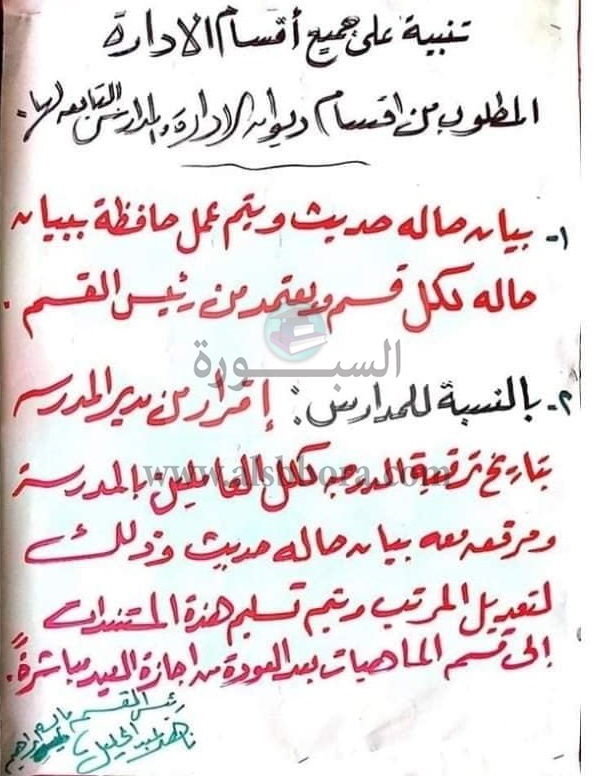 تنبية على جميع أقسام الادارة
المطلوب من اقسام ديوان الادارة والمدارس التابعه لها.
١- بيان حاله حديث ويتم عمل حافظة ببيان
حاله لكل قسم ويعتمد من رئيس القسم.
السبورة
٢- بالنسبة للمدارس: إقرار من مدير المدرسه
بتاريخ ترقية الدرجه لكل العاملين بالمدرسة
www.alsbbora.com
ومرفعه معه بيان حاله حديث وذلك
لتعديل المرتب ويتم تسليم هذة المستندات
إلى قسم الماهيات بعد العودة من اجازة العيد مباشرةً.
رئيس القسم
عبد الجليل